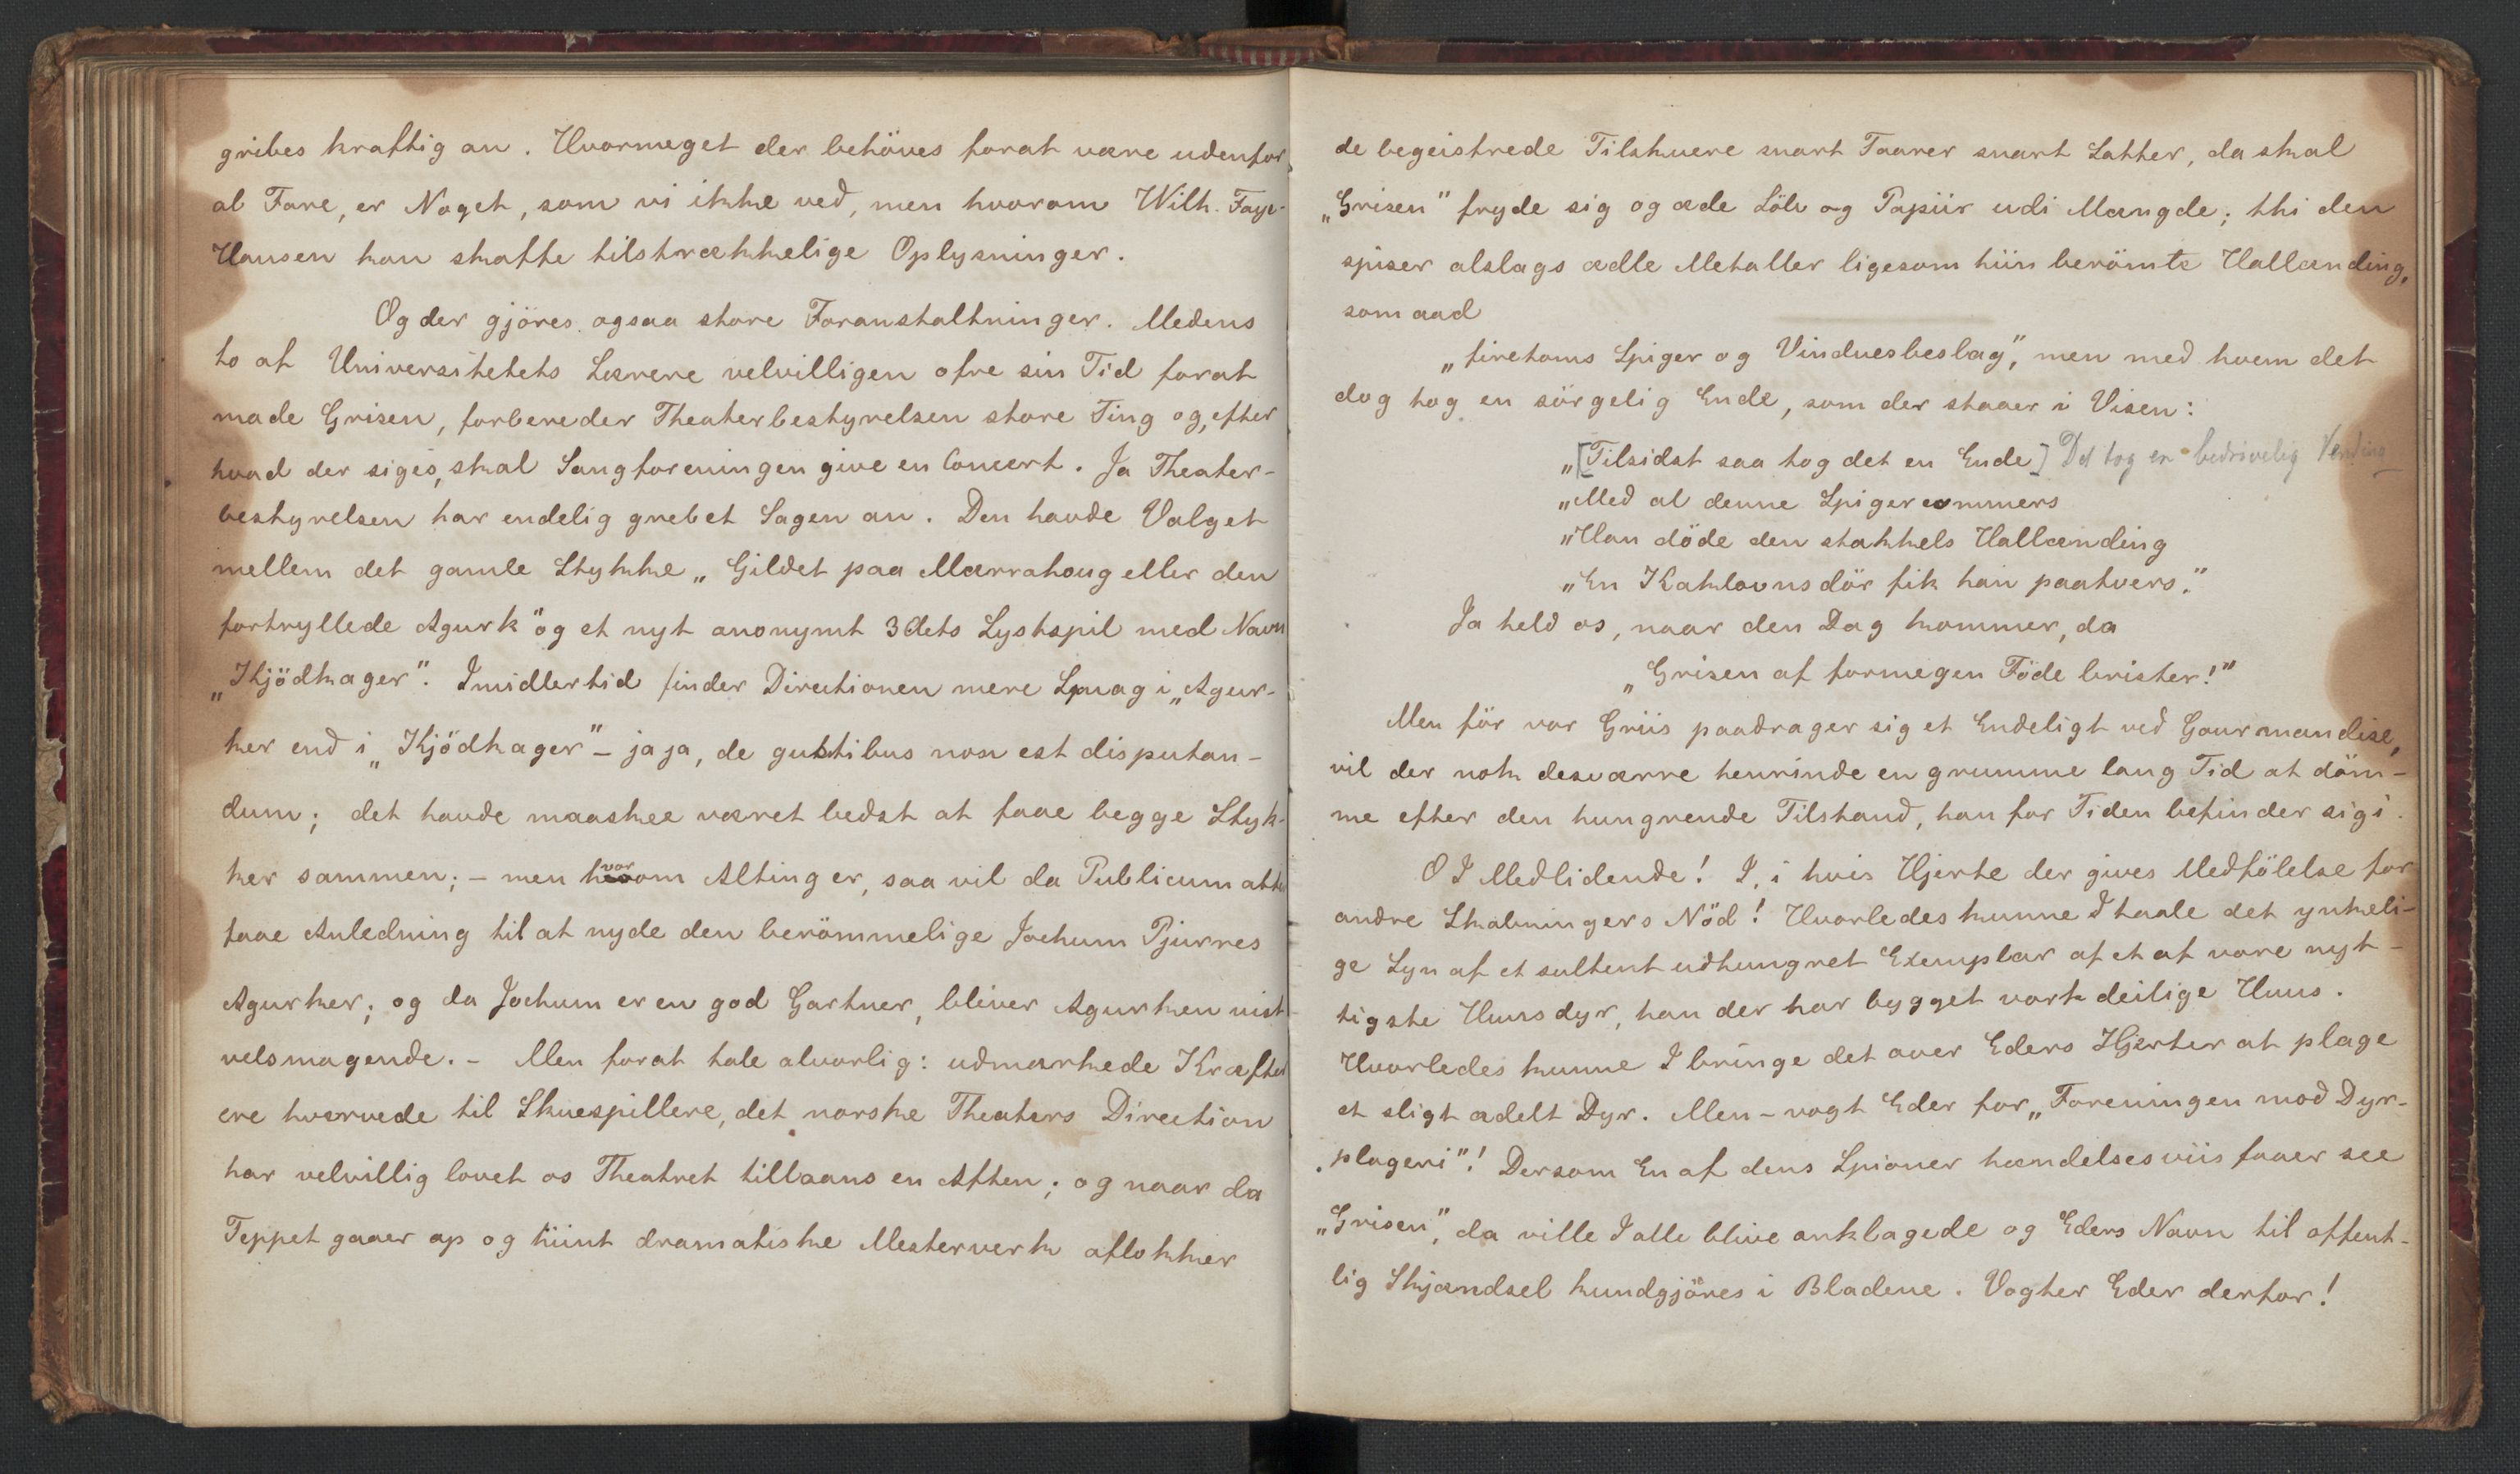 gribes kraftig an. Hvormeget der behöves forat være udenfor
al Fare, er Noget, som vi ikke ved, men hvorom Wilh. Faye-
Hansen kan skaffe tilstrækkelige Oplysninger.
Og der gjöres ogsaa store Foranstaltninger. Medens
to af Universitetets Lærere velvilligen ofre sin Tid forat
made Grisen, forbereder Theaterbestyrelsen store Ting og, efter
hvad der siges, skal Sangforeningen give en Concert. Ja Theater-
bestyrelsen har endelig grebet Sagen an. Den havde Valget
mellem det gamle Stykke „Gildet paa Mærrahoug eller den
fortryllede Agurk" og et nyt anonymt 3 Acts Lystspil med Navn
„Kjödkager". Imidlertid finder Directionen mere Smag i „Agur-
ker end i „Kjödkager" – ja ja, de gustibus non est disputan-
dum; det havde maaskee været bedst at faae begge Styk-
ker sammen; – men hvorom Alting er, saa vil da Publicum atter
faae Anledning til at nyde den berömmelige Jochum Pjurres
Agurker; og da Jochum er en god Gartner, bliver Agurken vist
velsmagende. – Men forat tale alvorlig: udmærkede Kræfter
ere hvervede til Skuespillere, det norske Theaters Direction
har velvillig lovet os Theatret tillaans en Aften; og naar da
Teppet gaaer op og hiint dramatiske Mesterverk aflokker
de begeistrede Tilskuere snart Taarer snart Latter, da skal
„Grisen" fryde sig og æde Sölv og Papiir udi Mængde; thi den
spiser alslags ædle Metaller ligesom hiin berömte Hallænding,
som aad
„firetoms Spiger og Vinduesbeslag", men med hvem det
dog tog en sörgelig Ende, som der staaer i Visen:
„[Tilsidst saa tog det en Ende] Det tog en bedrövelig Vending
„Med al denne Spigercommers
„Han döde den stakkels Hallænding
„En Kaklovnsdör fik han paatvers."
Ja held os, naar den Dag kommer, da
„Grisen af formegen Föde brister!"
Men för vor Griis paadrager sig et Endeligt ved Gourmandise,
vil der nok desværre henrinde en grumme lang Tid at döm-
me efter den hungrende Tilstand, han for Tiden befinder sig i.
O I Medlidende! I, i hvis Hjerte der gives Medfölelse for
andre Skabningers Nöd! Hvorledes kunne I taale det ynkeli-
ge Syn af et sultent udhungret Exemplar af et af vore nyt-
tigste Huusdyr, han der har bygget vort deilige Huus.
Hvorledes kunne I bringe det over Eders Hjerter at plage
et sligt ædelt Dyr. Men – vogt Eder for „Foreningen mod Dyr-
plageri"! Dersom En af dens Spioner hændelsesviis faaer see
„Grisen", da ville I alle blive anklagede og Eders Navn til offent-
lig Skjændsel kundgjöres i Bladene. Vogter Eder derfor!